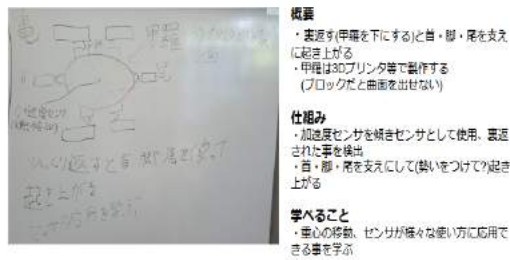 亀
甲羅
加速度センサ
ひっくり返すと首 脚 尾を使って
起き上がる
概要
・裏返す(甲羅を下にする)と首・脚・尾を支え
に起き上がる
・甲羅は3Dプリンタ等で製作する
(ブロックだと曲面を出せない)
仕組み
・加速度センサを傾きセンサとして使用、裏返
された事を検出
・首・脚・尾を支えにして(勢いをつけて?)起き
上がる
学べること
・重心の移動、センサが様々な使い方に応用で
きる事を学ぶ